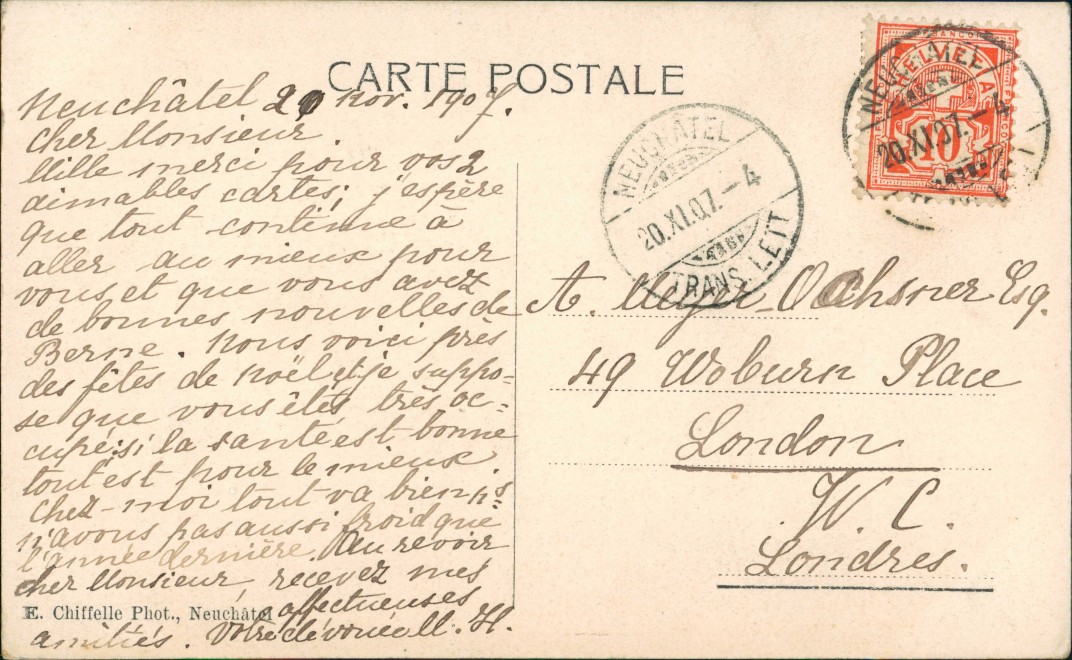 CARTE POSTALE
Neuchâtel 20 Nov. 1907.
cher Monsieur.
Mille merci pour vos 2
aimables cartes; j'espère
que tout continue à
aller au mieux pour
vous et que vous avez
de bonnes nouvelles de
Berne. Nous voici près
des fêtes de Noël et je suppo=
se que vous êtes très oc=
cupé; si la santé est bonne
tout est pour le mieux.
chez-moi tout va bien, ns
n'avons pas aussi froid que
l'année dernière. Au revoir
cher Monsieur, recevez mes
affectueuses
amitiés. Votre dévouée M. H.
E. Chiffelle Phot., Neuchâtel
NEUCHÂTEL
20.XI.07.-4
TRANS. LETT
FRANCO
NEUCHÂTEL
20.XI.07.-4
10
A. Meyer-Ochsner Esq.
49 Woburn Place
London
W. C.
Londres.